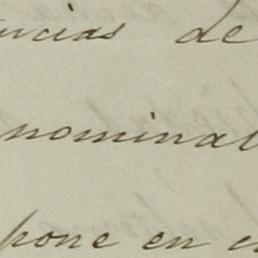 ncias de
nominal
pone en